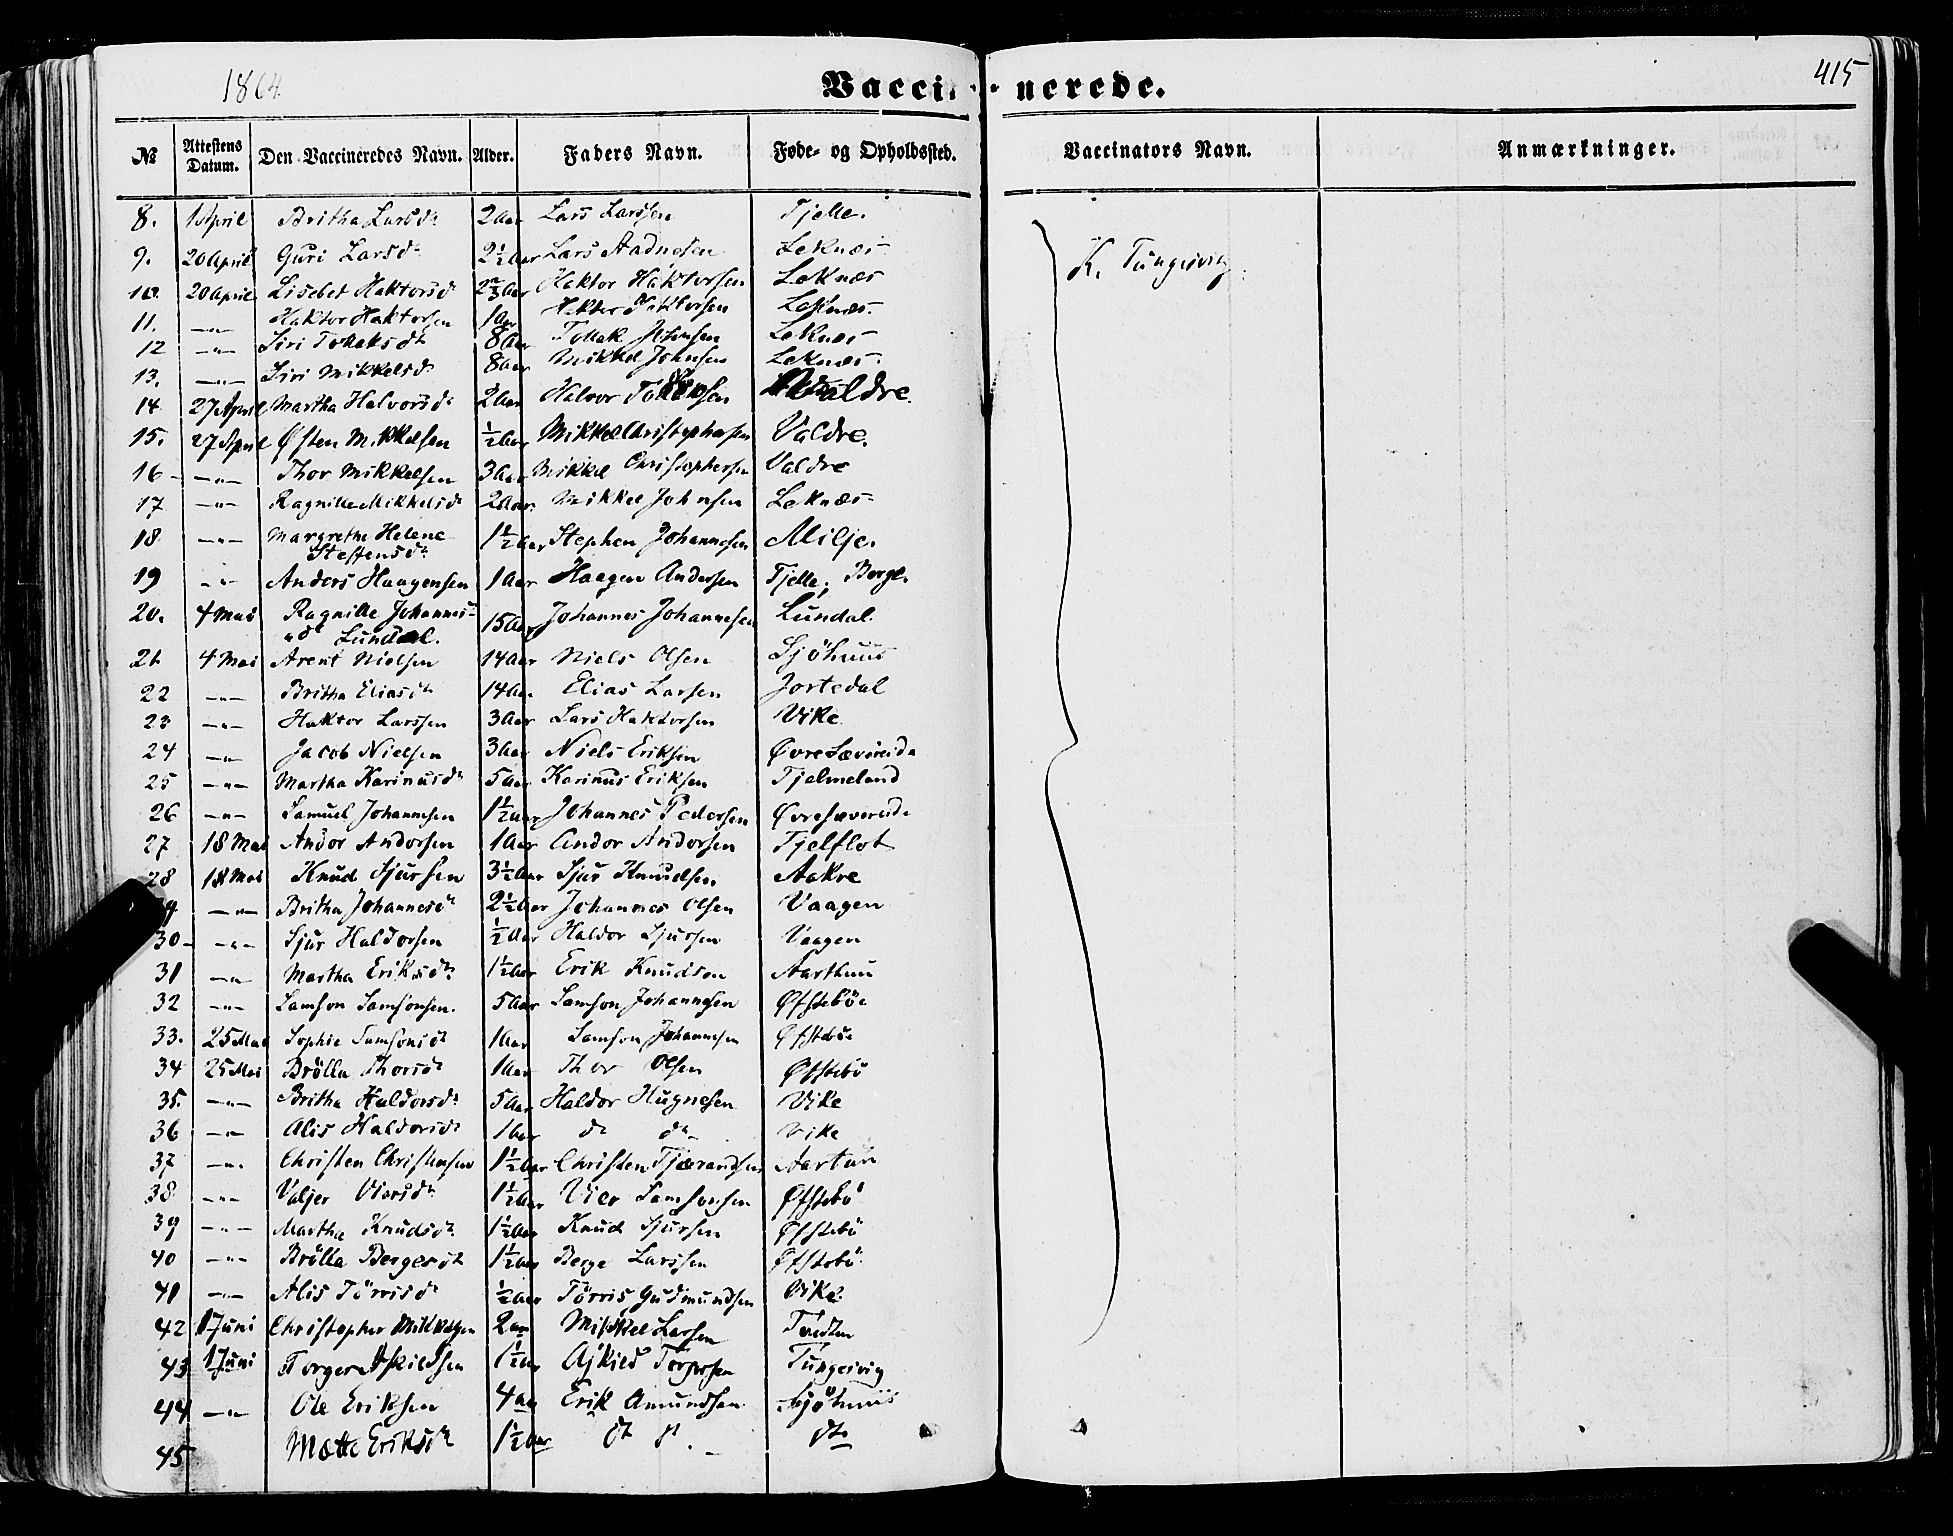 1864
Vaccinerede.
415
№ Attestens Datum. Den Vaccineredes Navn. Alder. Faders Navn. Føde- og Opholdssted. Vaccinators Navn. Anmærkninger.
8. 1 April Britha Larsdr 2 Aar Lars Larssen Tjelle.
9. 20 April Guri Larsdr 2½ Aar Lars Aadnesen Leknæs
10. 20 April Lisebet Haktorsd 2⅔ Aar Haktor Haktorsen Leknæs
11. —"— Haktor Haktorsen 1 Aar Haktor Haktorsen Leknæs.
12 —"— Siri Tollaksdr 8 Aar Tollak Johnsen Leknæs
13. —"— Siri Mikkelsd. 8 Aar Mikkel Johnsen Leknæs.
14 27 April Martha Halvorsdr 2 Aar Halvor Valdre.
15. 27 April Østen Mikkelsen ½ Aar Mikkel Christophersen Valdre.
16 —"— Thor Mikkelsen 3 Aar Mikkel Christophersen Valdre
17 —"— Ragnille Mikkelsdr 2 Aar Mikkel Johnsen Leknæs
18 —"— Margrethe Helene 1½ Aar Stephen Johannesen Milje.
Steffensdr
19 —"— Anders Haagensen 1 Aar Haagen Andersen Tjelle, Berge.
20. 4 Mai Ragnille Johannes- 15 Aar Johannes Johannesen Lundal.
"dr Lundal.
21 4 Mai Arent Nielsen 14 Aar Niels Olsen Sjöhuus
22 —"— Britha Eliasdr 14 Aar Elias Larsen Jostedal
23 —"— Haktor Larssen 3 Aar Lars Haktorsen Vike
24 —"— Jacob Nielsen 3 Aar Niels Eriksen Øvre Sævereide
25 —"— Martha Karinusdr 5 Aar Karinus Eriksen Tjelmeland
26 —"— Samuel Johannesen 1½ Aar Johannes Pedersen Øvresævereide
27 18 Mai Andor Andorsen 1 Aar Andor Andorsen Tjelflot
28 18 Mai Knud Sjursen 3½ Aar Sjur Knudsen Aakre
—"— Britha Johannesdr 2½ Aar Johannes Olsen Vaagen
30 —"— Sjur Haldorsen ½ Aar Haldor Sjursen Vaagen
31 —"— Martha Eriksdr 1½ Aar Erik Knudson Aarthun
32 —"— Samson Samsonsen. 5 Aar Samson Johannesen Øfsteböe
33. 25 Mai Sophie Samsonsdr 1 Aar Samson Johannesen Øfstebøe
34 25 Mai Brölla Thorsdr 1 Aar Thor Olsen Øfstebö
35. —"— Britha Haldorsdr 5 Aar Haldor Hugnesen Vike
36 —"— Alis Haldorsdr 1 Aar do do Vike
37 —"— Christen Christensen 1½ Aar Christen Tjærandsen Aartun
38 —"— 1½ Aar Samsonsen Øfstebö
39 —"— Martha Knudsdr 1½ Aar Knud Sjursen Øfstebö
40 —"— Brölla Bergesdr 1½ Aar Berge Larssen Øfstebö
41 —"— Alis Törrisdr ½ Aar Törris Gudmundsen Vike
42 1 Juni Christopher Mikkelsen 2 Aar Mikkel Larsen
43 1 Juni Torger Askildsen 1½ Aar Askild Torgersen Tungesvig
44 —"— Ole Eriksen 4 Aar Erik Amundsen Sjöhuus
45 Mætte Eriksdr 1½ Aar do do do
K. Tungesvig.